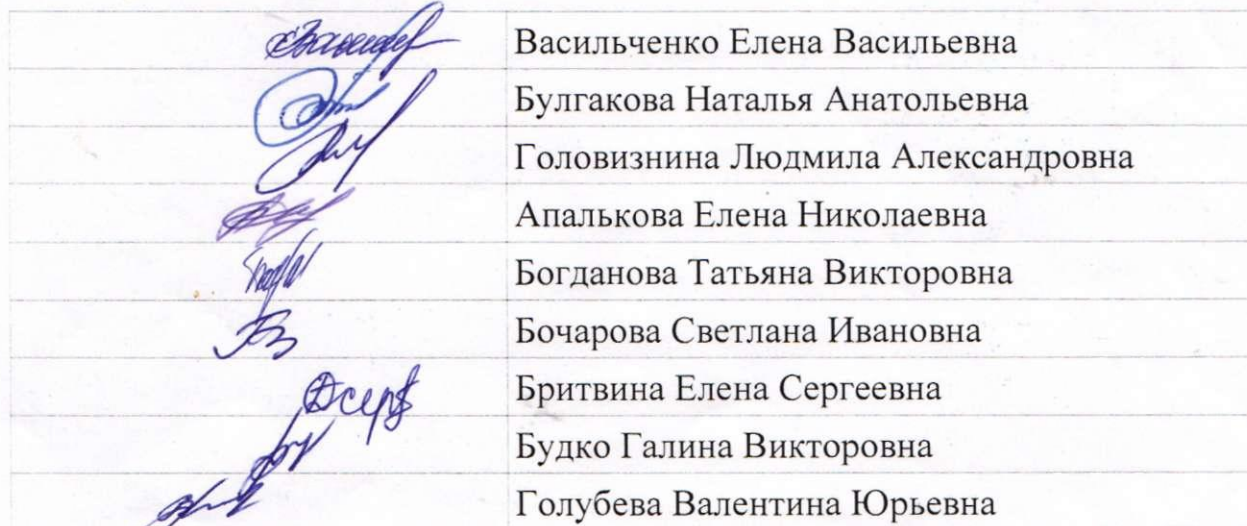 Васильченко Елена Васильевна
Булгакова Наталья Анатольевна
Головизнина Людмила Александровна
Апалькова Елена Николаевна
Богданова Татьяна Викторовна
Бочарова Светлана Ивановна
Бритвина Елена Сергеевна
Будко Галина Викторовна
Голубева Валентина Юрьевна